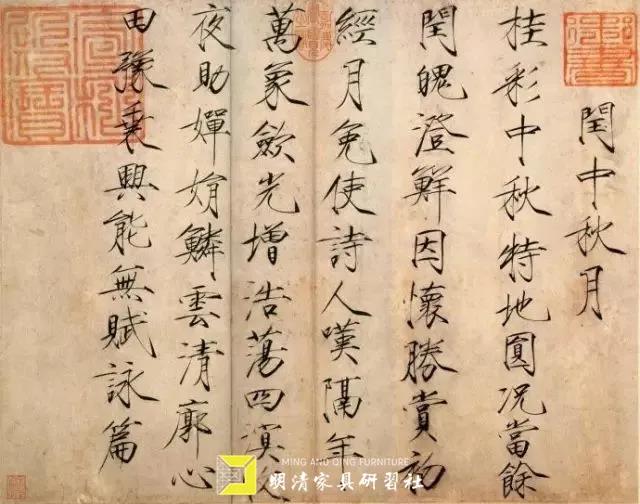 閏中秋月
桂彩中秋特地圓況當餘
閏魄澄鮮因懷勝賞初
經月免使詩人嘆隔年
萬象歛光增浩蕩四溟收
夜助嬋娟鱗雲清廓心
田豫乘興能無賦詠篇
MING AND QING FURNITURE
明清家具研習社